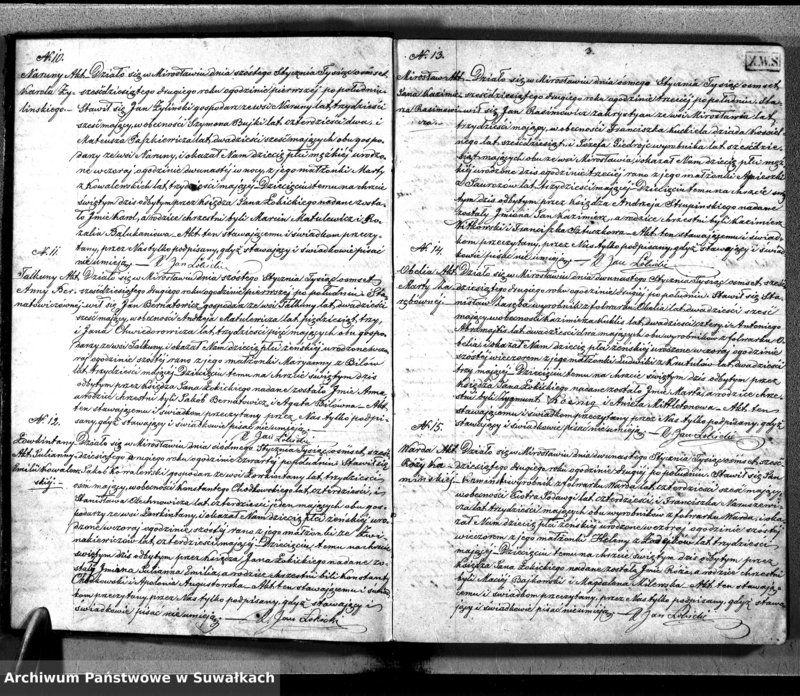 N. 10.
Naruny Akt. Działo się w Mirosławiu dnia szóstego Stycznia Tysiąc ośmset
Karola Ży- sześćdziesiątego drugiego roku o godzinie pierwszej po południu
lińskiego. Stawił się Jan Żyliński gospodarz ze wsi Naruny lat trzydzieści
sześć mający, w obecności Szymona Bujki lat czterdzieści dwa, i
Mateusza lat dwadzieścia sześć mających obu gospo-
darzy ze wsi Naruny, i okazał Nam dziecię płci męzkiej urodzo-
ne wczoraj o godzinie dwunastej w nocy, z jego małżonki Marty
z Kowalewskich lat trzydzieści mającej. Dziecięciu temu na chrzcie
świętym dziś odbytym przez Księdza Jana Łukickiego nadane zosta-
ło Jmie Karol, a rodzice chrzestni byli Marcin Matulewicz i Ro-
zalia Balukanisowa. Akt ten stawającemu i świadkom przeczy-
tany, przez Nas tylko podpisany, gdyż stawający i świadkowie pisać
nie umieją. X Jan
N. 11.
Talkuny Akt. Działo się w Mirosławiu dnia szóstego Stycznia Tysiąc ośmset
Anny Ber- sześćdziesiątego drugiego roku o godzinie pierwszej po południu. Sta-
natowiczównej wił się Jan Bernatowicz, gospodarz ze wsi Talkuny, lat dwadzieścia
sześć mający, w obecności Andrzeja Matulewicza lat pięćdziesiąt trzy
i Jana lat trzydzieści pięć mających obu gospo-
darzy ze wsi Talkuny, i okazał Nam dziecię płci żeńskiej urodzone wczo-
raj o godzinie szóstej rano z jego małżonki Maryanny z Bilów
lat trzydzieści mającej. Dziecięciu temu na chrzcie świętym dziś
odbytym przez Księdza Jana Łukickiego nadane zostało Jmie Anna,
a rodzice chrzestni byli Jakób Bernatowicz i Agata Bilowna. Akt
ten stawającemu i świadkom przeczytany przez Nas tylko podpi-
sany, gdyż stawający i świadkowie pisać nie umieją.
X Jan
N. 12.
Działo się w Mirosławiu dnia siódmego Stycznia Tysiąc ośmset sześć-
Akt Julianny dziesiątego drugiego roku o godzinie czwartej po południu. Stawił się
Emilii Kowalew- Jakób Kowalewski, gospodarz ze wsi lat trzydzieści
skiej. mający, w obecności Konstantego Chodkowskiego lat czterdzieści, i
Stanisława lat czterdzieści jeden mających obu gos-
podarzy ze wsi i okazał Nam dziecię płci żeńskiej uro-
dzone wczoraj o godzinie szóstej rano z jego małżonki
lat czterdzieści mającej. Dziecięciu temu na chrzcie
świętym dziś odbytym przez Księdza Jana Łukickiego nadane zo-
stały Jmiona Julianna Emilia, a rodzice chrzestni byli Konstanty
Chodkowski i Apolonia Augustowska. Akt ten stawającemu i świad-
kom przeczytany, przez Nas tylko podpisany, gdyż stawający i
świadkowie pisać nie umieją. X Jan
3.
Z.W.S
N. 13.
Mirosław Akt. Działo się w Mirosławiu dnia ósmego Stycznia Tysiąc ośmset
Jana Kazimie- sześćdziesiątego drugiego roku o godzinie trzeciej po południu. Sta-
rza Rasimowi- wił się Jan Rasimowicz zakrystyan ze wsi Mirosławia lat
cza. trzydzieści mający, w obecności Franciszka Kukiela dziada kościel-
nego lat sześćdziesiąt, i Józefa wyrobnika lat sześćdzie-
siąt mających, obu ze wsi Mirosławia i okazał Nam dziecię płci męz-
kiej urodzone dziś o godzinie trzeciej rano, z jego małżonki Agnieszki
z lat trzydzieści mającej. Dziecięciu temu na chrzcie świę-
tym dziś odbytym przez Księdza Andrzeja Stupińskiego nadane
zostały Jmiona Jan Kazimierz, a rodzice chrzestni byli Kazimierz
Witkowski i Franciszka. Akt ten stawającemu i świad-
kom przeczytany, przez Nas tylko podpisany, gdyż stawający i świad-
kowie pisać nie umieją. X Jan
N. 14.
Obelia Akt. Działo się w Mirosławiu dnia dwunastego Stycznia Tysiąc ośmset sześć-
Marty Ha- dziesiątego drugiego roku o godzinie drugiej po południu. Stawił się Sta-
nisław wyrobnik z folwarku Obelia lat dwadzieścia sześć
mający w obecności Kazimierza Kuklis lat dwadzieścia cztery i Antoniego
lat dwadzieścia dwa mających obu wyrobników z folwarku O-
belia i okazał Nam dziecię płci żeńskiej urodzone wczoraj o godzinie
szóstej wieczorem z jego małżonki Ludwiki z lat dwadzieścia
trzy mającej. Dziecięciu temu na chrzcie świętym dziś odbytym przez
Księdza Jana Łukickiego nadane zostało Jmie Marta, a rodzice chrze-
stni byli Zygmunt i Aniela. Akt ten
stawającemu i świadkom przeczytany przez Nas tylko podpisany, gdyż
stawający i świadkowie pisać nie umieją. X Jan
N. 15.
Warda Akt. Działo się w Mirosławiu dnia dwunastego Stycznia Tysiąc ośmset sześć-
Rózy Ka- dziesiątego drugiego roku o godzinie drugiej po południu. Stawił się Jan
mińskiej. Kamiński wyrobnik z folwarku Warda, lat czterdzieści sześć mający,
w obecności Piotra lat czterdzieści, i Franciszka
lat trzydzieści mających obu wyrobników z folwarku Warda, i oka-
zał Nam dziecię płci żeńskiej urodzone wczoraj o godzinie szóstej
wieczorem z jego małżonki Heleny z lat trzydzieści
mającej. Dziecięciu temu na chrzcie świętym dziś odbytym przez
Księdza Jana Łukickiego nadane zostało Jmie Róża, a rodzice chrzestni
byli Maciej Bajkowski i Magdalena Milewska. Akt ten stawają-
cemu i świadkom przeczytany, przez Nas tylko podpisany, gdyż stawa-
jący i świadkowie pisać nie umieją. X Jan
Archiwum Państwowe w Suwałkach